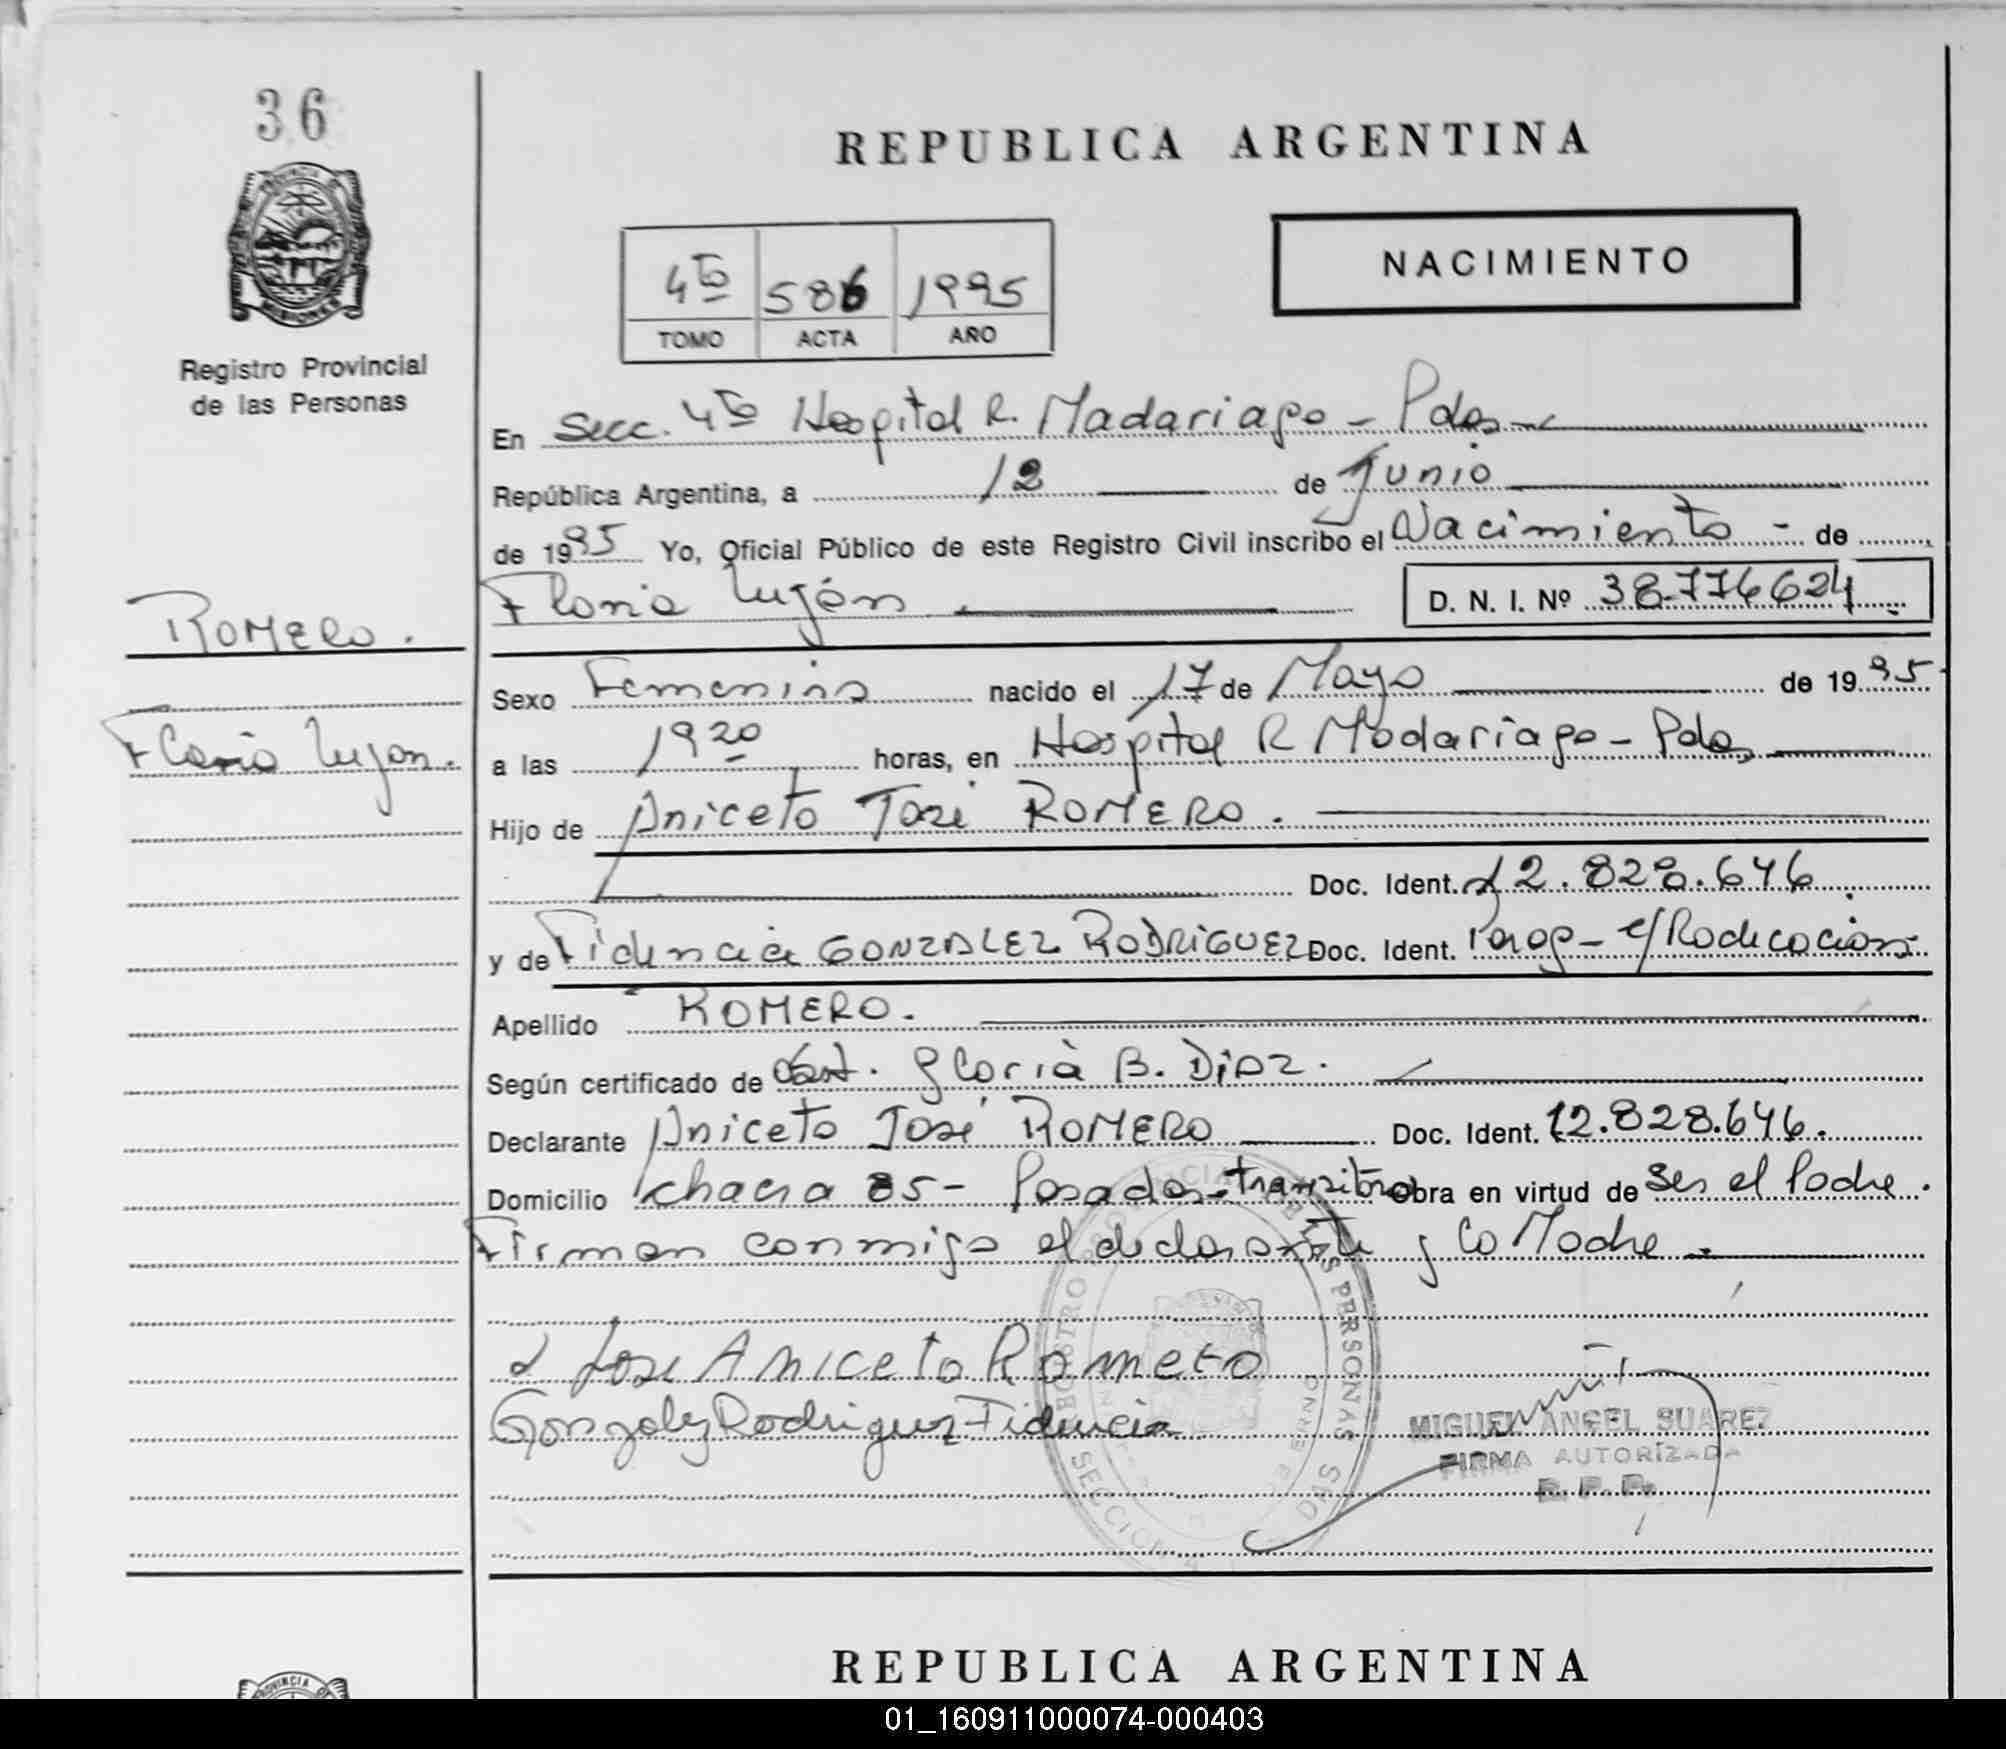 36
REPUBLICA ARGENTINA
NACIMIENTO
4to 586 1995
TOMO ACTA AÑO
Registro Provincial
de las Personas
En Secc. 4to Hospital R. Madariaga - Pdas
República Argentina, a 12 de Junio
de 1995 Yo, Oficial Público de este Registro Civil inscribo el Nacimiento - de
Luján D. N. I. Nº 38.776624
ROMERO.
Sexo Femenino nacido el 17 de Mayo de 1995
Lujan.
a las 19 20 horas, en Hospital R Madariaga - Pdas
Hijo de Aniceto José ROMERO.
Doc. Ident. 12.828.646
y de Fidencia GONZALEZ RODRIGUEZ Doc. Ident. Parag - c/Radicacion
Apellido ROMERO.
Según certificado de Obst. Gloria B. Diaz.
Declarante Aniceto José ROMERO Doc. Ident. 12.828.646.
Domicilio chacra 85 - Posadas - transitorio Obra en virtud de ser el Padre.
Firman conmigo el declarante y la Madre.
Jose Aniceto Romero
Gonzalez Rodriguez Fidencia
MIGUEL ANGEL SUAREZ
FIRMA AUTORIZADA
R. P. P.
REPUBLICA ARGENTINA
01_160911000074-000403